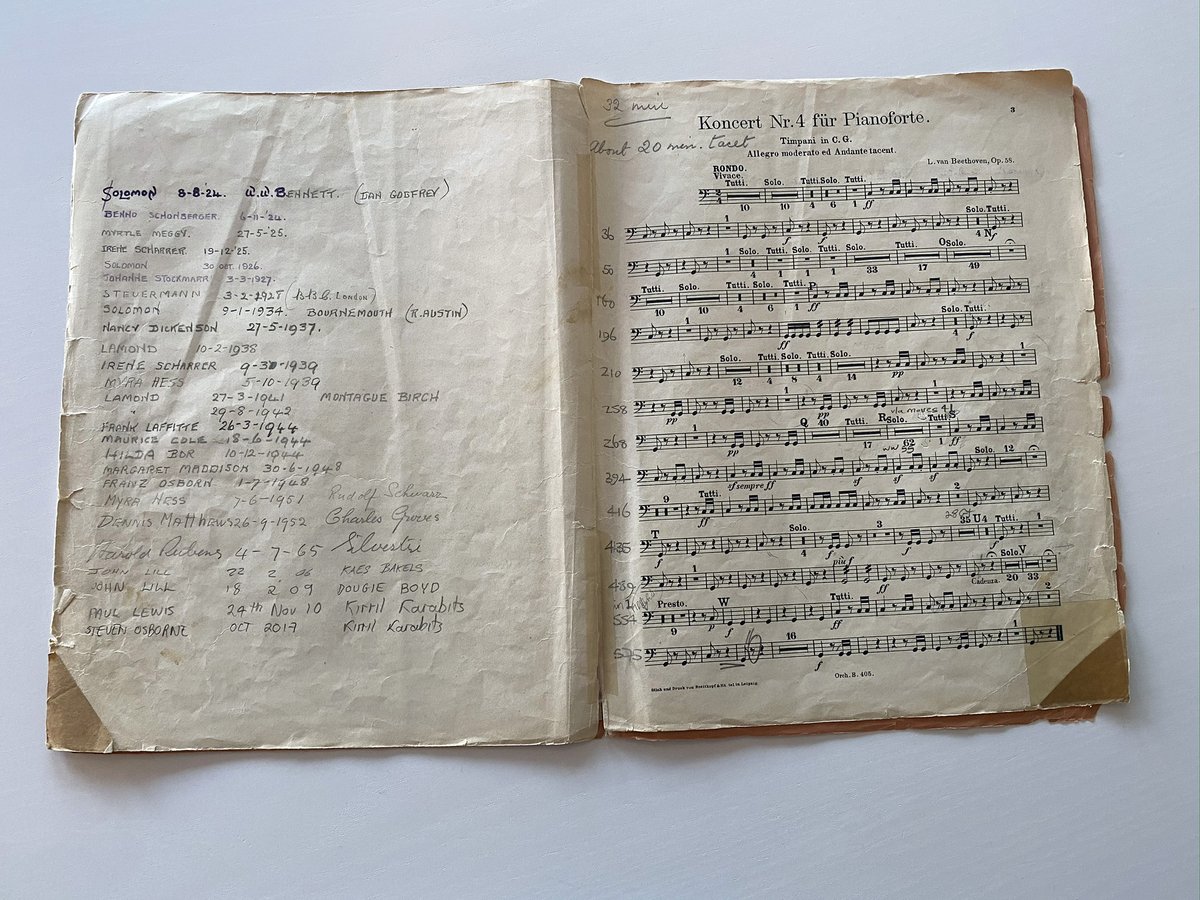 SOLOMON 8-8-24. W.W. BENNETT. (DAN GODFREY)
BENNO SCHONBERGER. 6-11-'24.
MYRTLE MEGGY. 27-5-'25.
IRENE SCHARRER. 19-12-'25.
SOLOMON 30 OCT. 1926.
JOHANNE STOCKMARR 3-3-1927.
STEUERMANN 3-2-1928 (B.B.C. LONDON)
SOLOMON 9-1-1934. BOURNEMOUTH (R. AUSTIN)
NANCY DICKENSON 27-5-1937.
LAMOND 10-2-1938
IRENE SCHARRER 9-3-1939
MYRA HESS 5-10-1939
LAMOND 27-3-1941 MONTAGUE BIRCH
" 29-8-1942
FRANK LAFFITTE 26-3-1944
MAURICE COLE 18-6-1944
HILDA BOR 10-12-1944
MARGARET MADDISON 30-6-1948
FRANZ OSBORN 1-7-1948
MYRA HESS 7-6-1951 Rudolf Schwarz
DENNIS MATTHEWS 26-9-1952 Charles Groves
Harold Rubens 4-7-65 Silvestri
JOHN LILL 22 2 06 KAES BAKELS
JOHN LILL 18 2 09 DOUGIE BOYD
PAUL LEWIS 24th Nov 10 Kirril Karabits
STEVEN OSBORNE OCT 2017 Kirril Karabits
32 min
3
Koncert Nr. 4 für Pianoforte.
About 20 min. tacet
Timpani in C. G.
Allegro moderato ed Andante tacent.
L. van Beethoven, Op. 58.
RONDO.
Vivace.
Tutti. Solo. Tutti. Solo. Tutti.
10 10 4 6 1 ff
36 1 f f Solo. Tutti. 4 N f
1 Solo. Tutti. Solo. Tutti. Solo. Tutti. O Solo.
4 1 1 1 33 17 49
160 Tutti. Solo. Tutti. Solo. Tutti. P
10 10 4 6 1 ff
196 1 ff Solo. Tutti. 4 f
210 Solo. Tutti. Solo. Tutti. Solo. 1
12 4 8 4 14 pp
258 pp 1 pp 1
268 1 pp Q 40 Tutti. R Solo. Tutti. S
17 62 1 ff
sf sempre ff sf sf sf Solo. 12
416 9 Tutti. ff 2
435 T Solo. 3 35 U 4 Tutti. 1
f 4 f f
489 1 più f ff Cadenza. Solo. V
20 33
554 Presto. W Tutti. 2
9 p f ff
575 16 f 1
Orch. B. 405.
Stich und Druck von Breitkopf & Härtel in Leipzig.